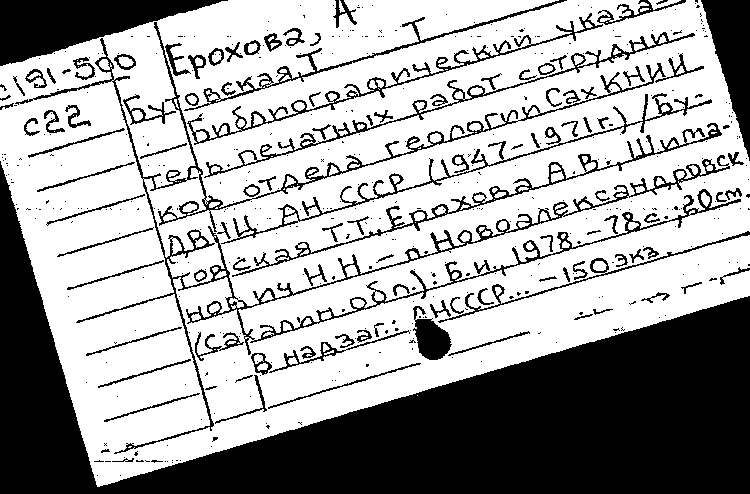 Ерохова, А
с191-500
Бутовская, Т Т
с22
Библиографический указа-
тель печатных работ сотрудни-
ков отдела геологии СахКНИИ
ДВНЦ АН СССР (1947-1971г.) /Бу-
товская Т.Т., Ерохова А.В., Шима-
нович Н.Н. – п. Новоалександровск
(Сахалин. обл.): Б.и., 1978. – 78с.; 20см.
В надзаг.: АНСССР... – 150экз.